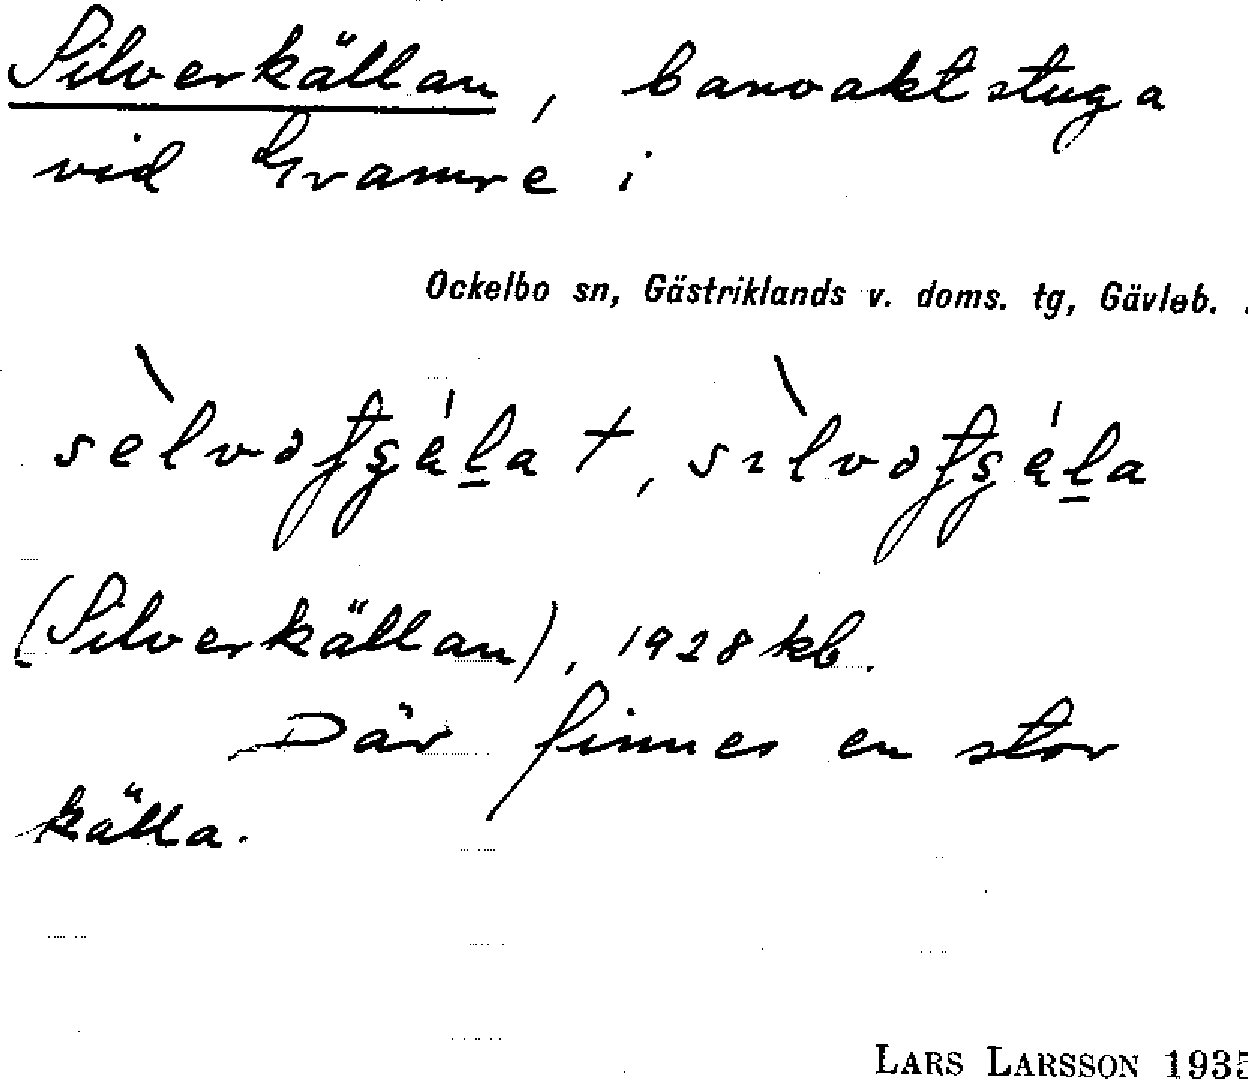 Silverkällan, banvaktstuga
vid Gramre i
Ockelbo sn, Gästriklands v. doms. tg, Gävleb.
(Silverkällan), 1928 kb.
Där finnes en stor
källa.
LARS LARSSON 1935